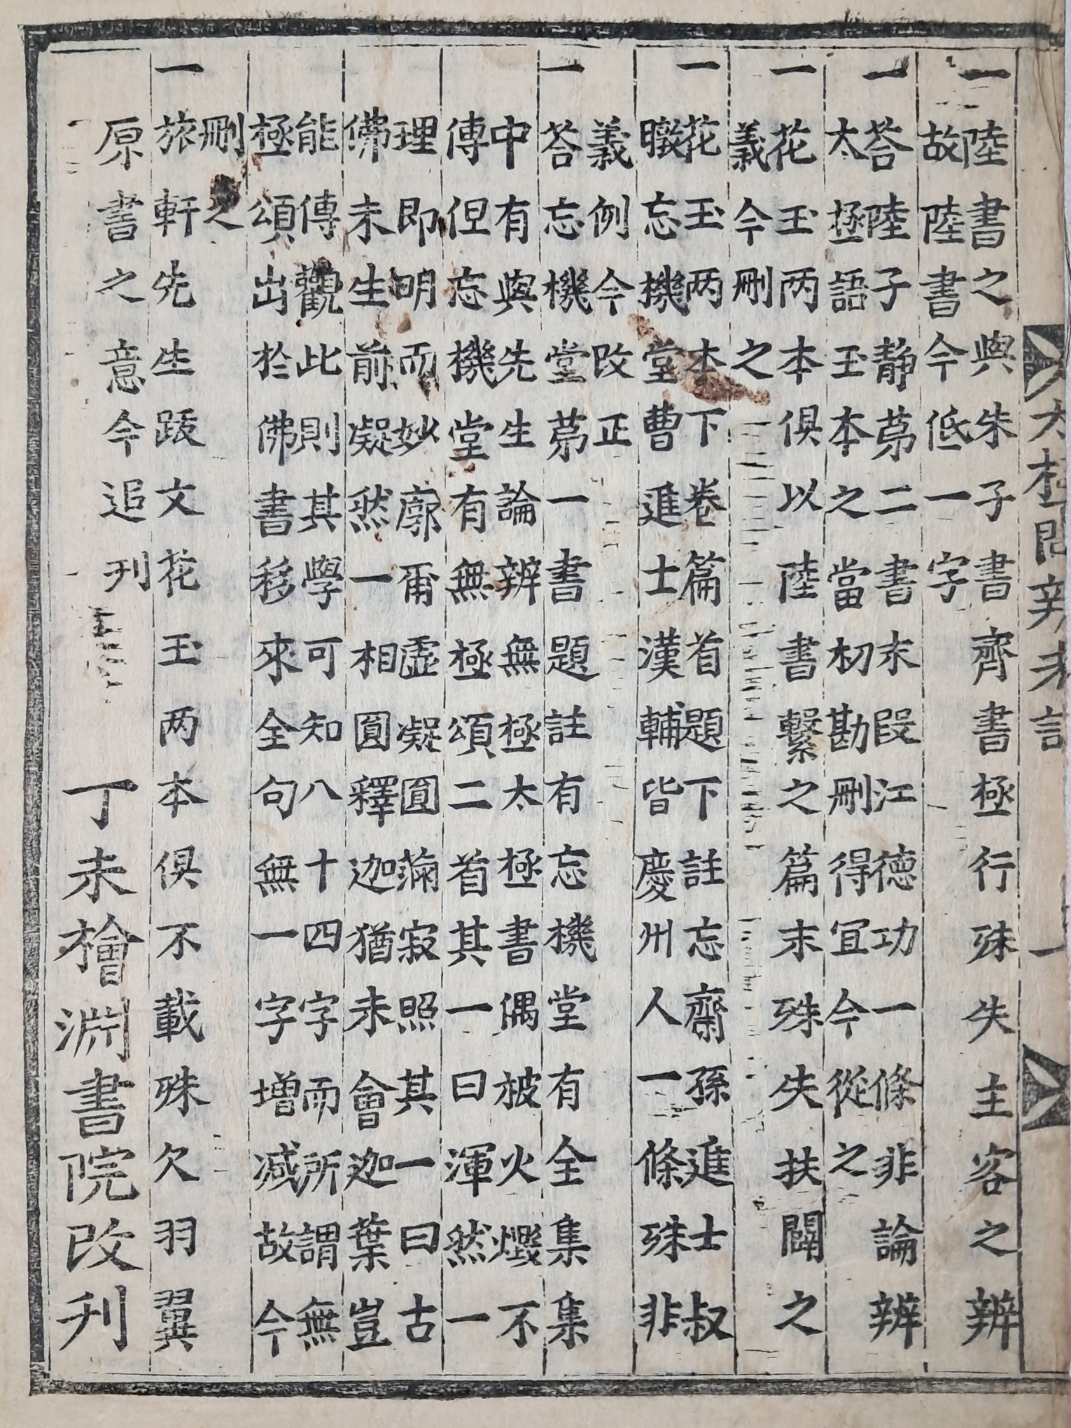 太極問辨考
一
一陸書之與朱子書齊書極行殊失主客之辨
故陸書今低一字
一荅陸子静苐二書末段江德功一條非論辨
太極語玉本之當初勘刪得冝今從之
一花玉两本俱以陸書繫之篇末殊失扶闢之
義今刪之
一花玉两本下卷篇首題下註忘齋孫進士叔
暾忘機堂曹進士漢輔皆慶州人一條殊非
義例今改正
一荅忘機堂苐一書題註有忘機堂有全集集
中有與先生論辨無極太極書偶被火燬不
傳但忘機堂有無極頌二首其一曰渾然一
理即明而妙廓爾虛凝圓滿寂照其一曰古
佛未生前凝然一相圓釋迦猶未會迦葉豈
能傳觀此則其學可知八十四字而所謂無
極頌出於佛書移來全句無一字增减故今
刪之
一旅軒先生跋文花玉两本俱不載殊欠羽翼
原書之意今追刊
丁未檜淵書院改刊